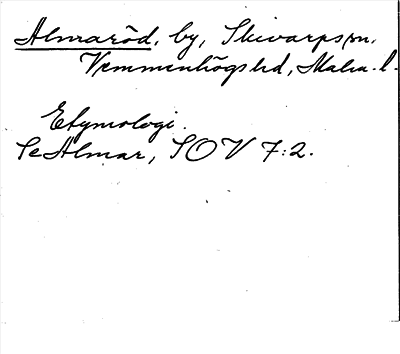 Almaröd, by, Skivarps sn,
Vemmenhögs hd, Malm. l.
Etymologi.
Se Almar, SOV 7:2.